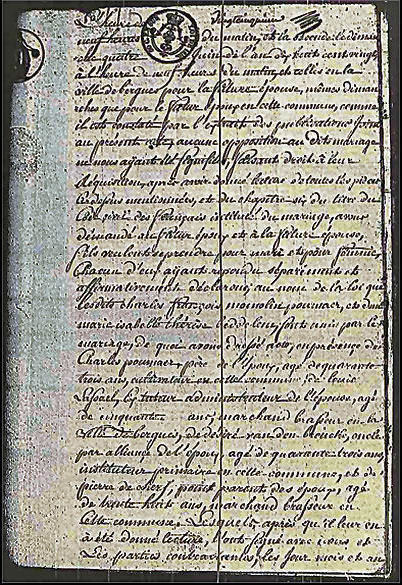 L'heure de vingtcinquieme
neuf heures du matin, et la seconde le diman
che quatre juin de l'an dix huit cent vingt
à l'heure de neuf heures du matin, et celles en la
ville de bergues pour la future épouse, mêmes diman
ches que pour le futur époux en cette commune, comme
il est constaté par l'extrait des publications joint
au present acte, aucune opposition au dit mariage
ne nous ayant été signifiée, faisant droit à leur
Requisition, après avoir donné lecture de toutes les pieces
ci dessus mentionnées, et du chapitre six du titre du
Code civil des français intitulé du mariage, avons
demandé au futur époux et à la future épouse,
s'ils veulent se prendre pour mari et pour femme
Chacun d'eux ayant repondu separement et
affirmativement declarons au nom de la loi que
les dits charles françois pournaer, et
marie isabelle thérèse sont unis par le
mariage, de quoi avons dressé acte, en presence de
Charles pournaer, père de l'époux, agé de quarante
trois ans, cultivateur en cette commune, de louis
tuteur administrateur de l'épouse, agé
de cinquante ans, marchand brasseur en la
ville de bergues, de désiré vanden oncle
par alliance de l'époux, agé de quarante trois ans,
instituteur primaire en cette commune, et de
pierre point parent des époux, agé
de trente huit ans, marchand brasseur en
Cette commune, Lesquels, après qu'il leur en
a été donné lecture, l'ont signé avec nous et
Les parties contractantes, les jour, mois et an